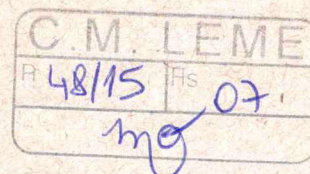 C.M. LEME
P 48/15 Fls 07.